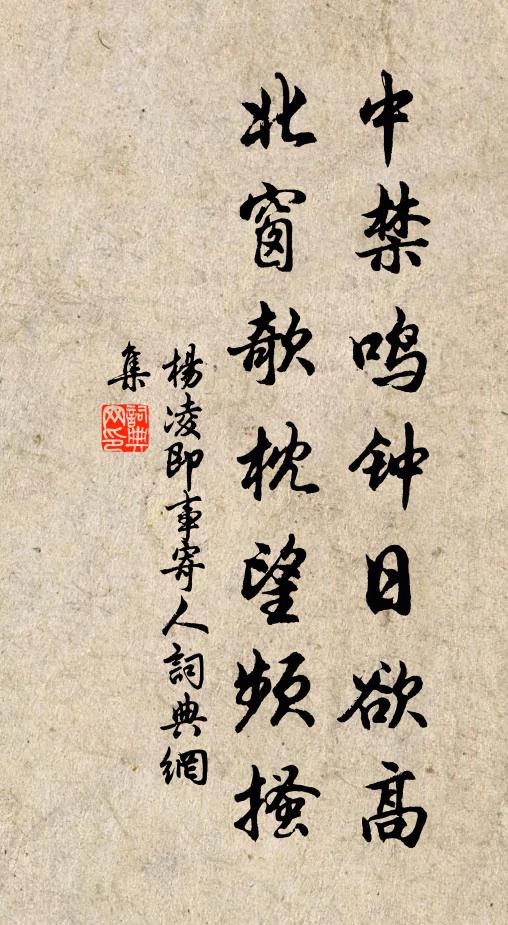 中禁鸣钟日欲高
北窗欹枕望频搔
楊凌即事寄人詞典網
集
詞典网印